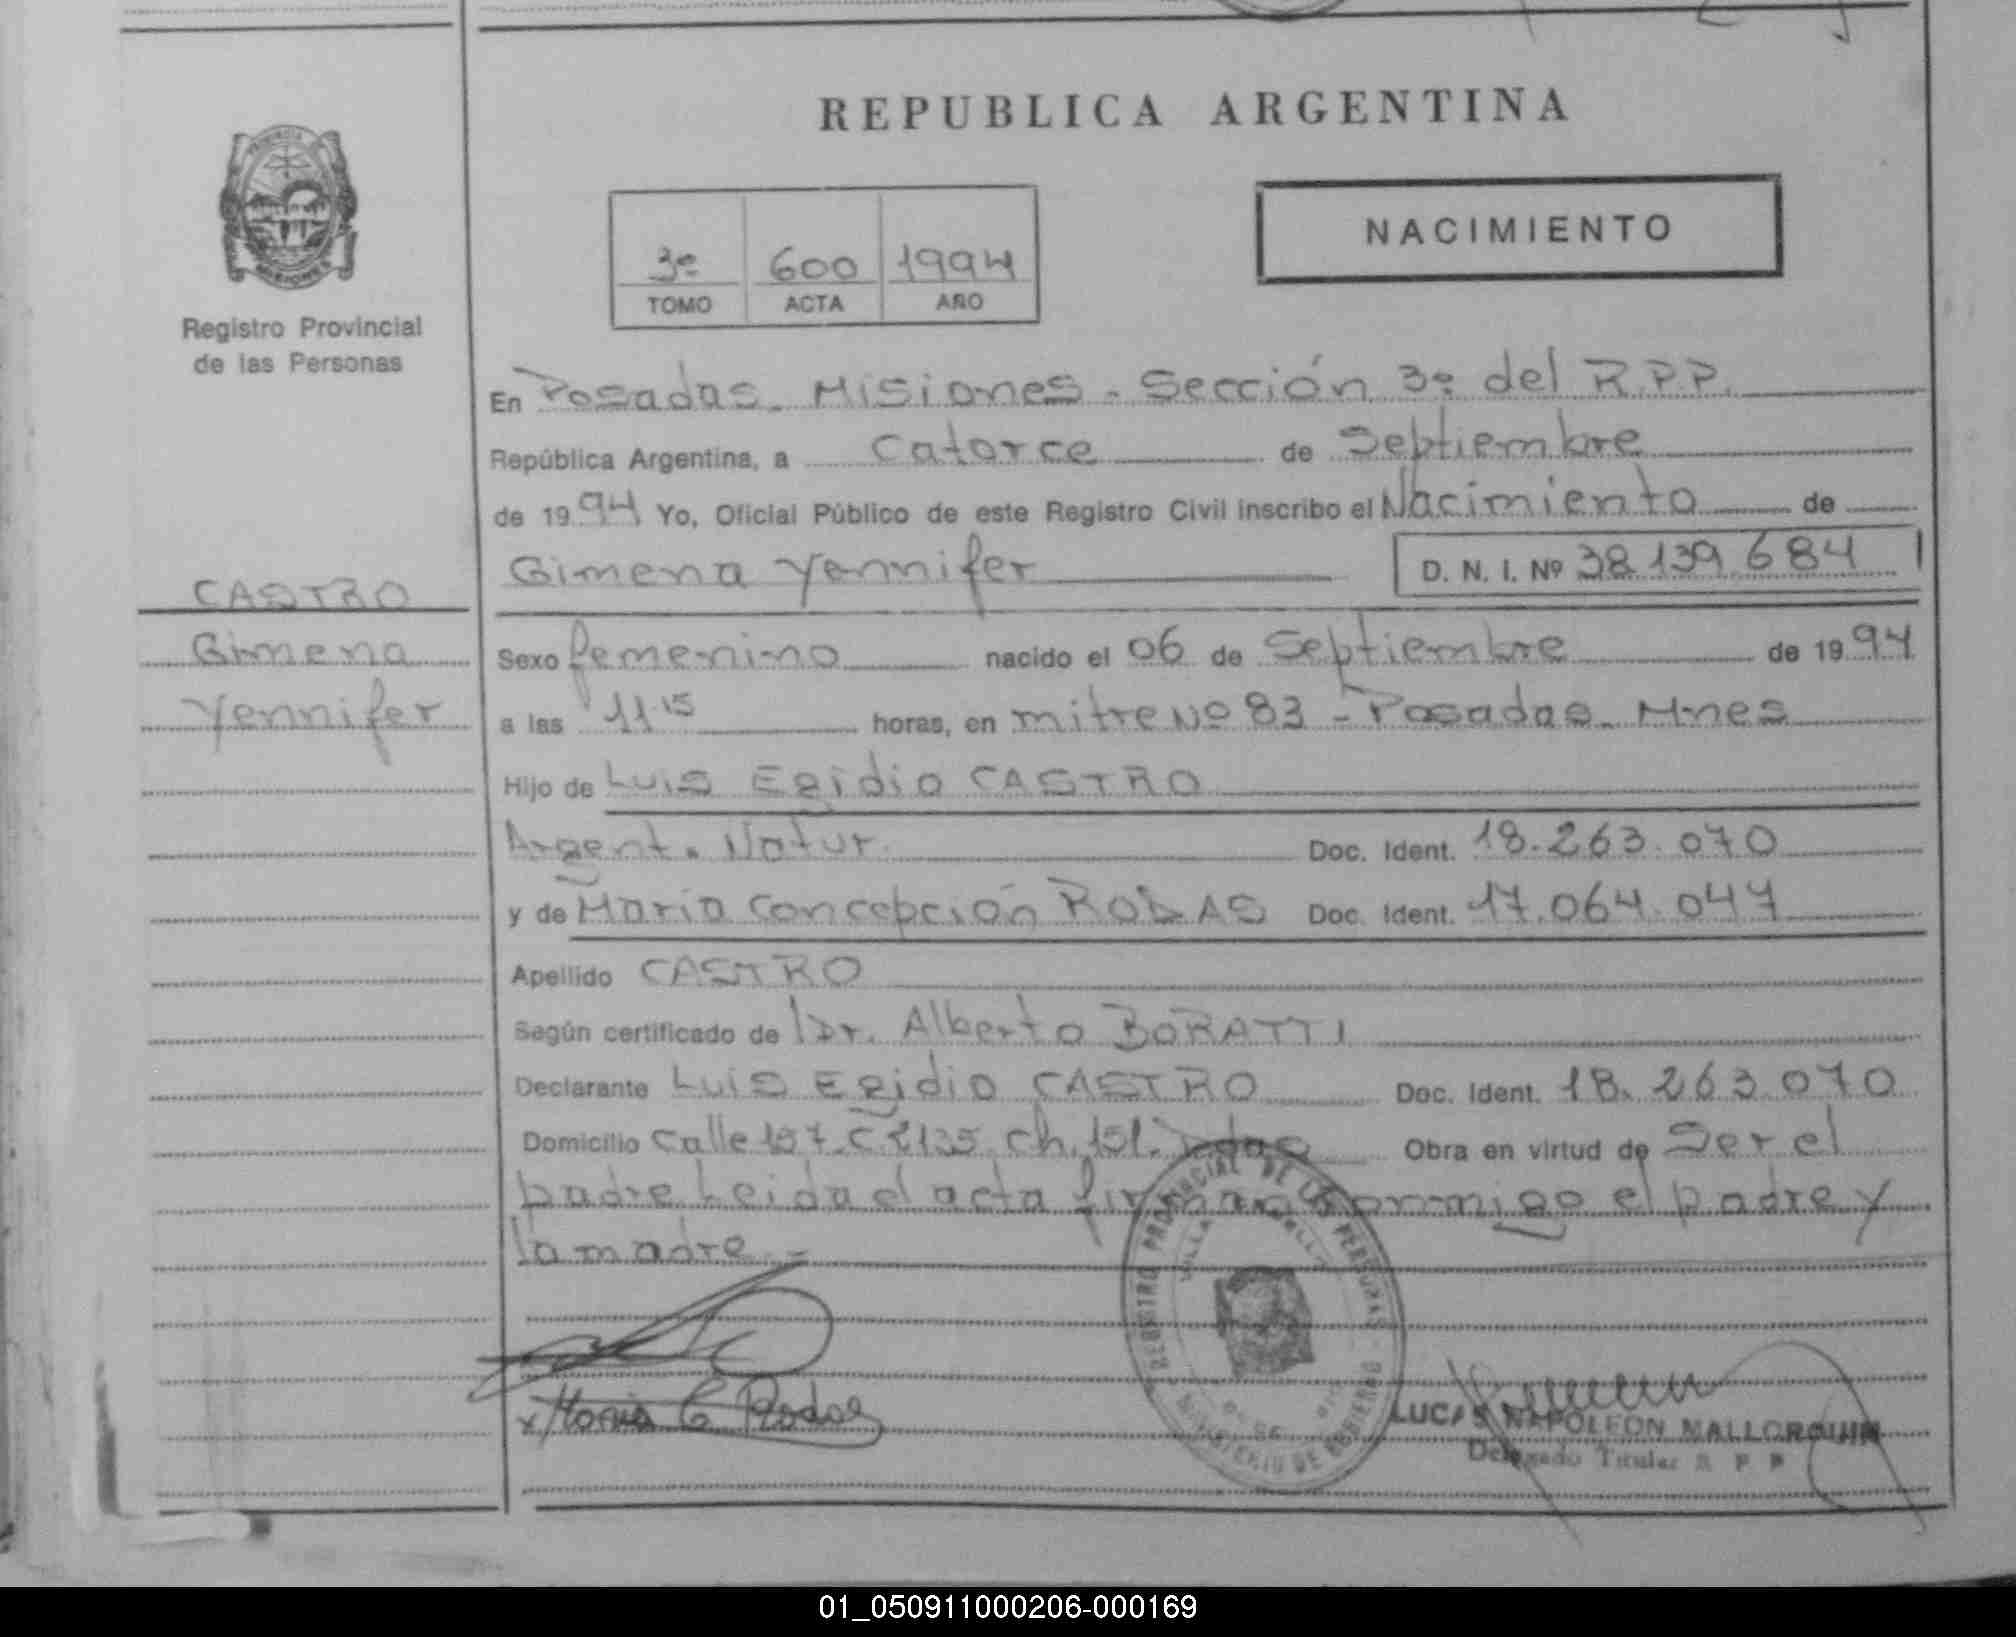 REPUBLICA ARGENTINA
NACIMIENTO
3º 600 1994
TOMO ACTA AÑO
Registro Provincial
de las Personas
En Posadas. Misiones - Sección 3º del R.P.P.
República Argentina, a Catorce de Septiembre
de 1994 Yo, Oficial Público de este Registro Civil inscribo el Nacimiento de
Gimena Yennifer D. N. I. Nº 38.139.684
CASTRO
Gimena
Yennifer
Sexo femenino nacido el 06 de Septiembre de 1994
a las 11 15 horas, en mitre Nº 83 - Posadas. Mnes
Hijo de Luis Egidio CASTRO
Argent. Natur. Doc. Ident. 18.263.070
y de Maria Concepción RODAS Doc. Ident. 17.064.047
Apellido CASTRO
Según certificado de Dr. Alberto BORATTI
Declarante Luis Egidio CASTRO Doc. Ident. 18.263.070
Domicilio Calle 157. C 2135. Ch. 151. Pdas Obra en virtud de Ser el
padre Leida el acta firman conmigo el padre y
la madre. =
REGISTRO PROVINCIAL DE LAS PERSONAS
MINISTERIO DE GOBIERNO
x Maria C Rodas
LUCAS NAPOLEON MALLORQUIN
Delegado Titular R P P
01_050911000206-000169